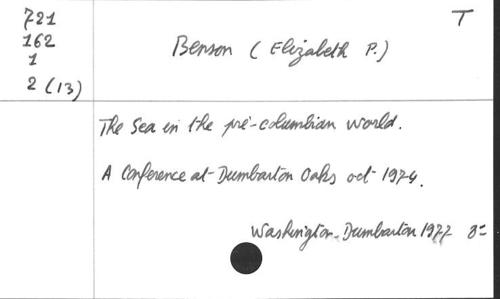 721
162
1
2 (13)
T
Benson ( Elizabeth P.)
The Sea in the pré-columbian world.
A Conference at Dumbarton Oaks oct 1974.
Washington-Dumbarton 1977 8=